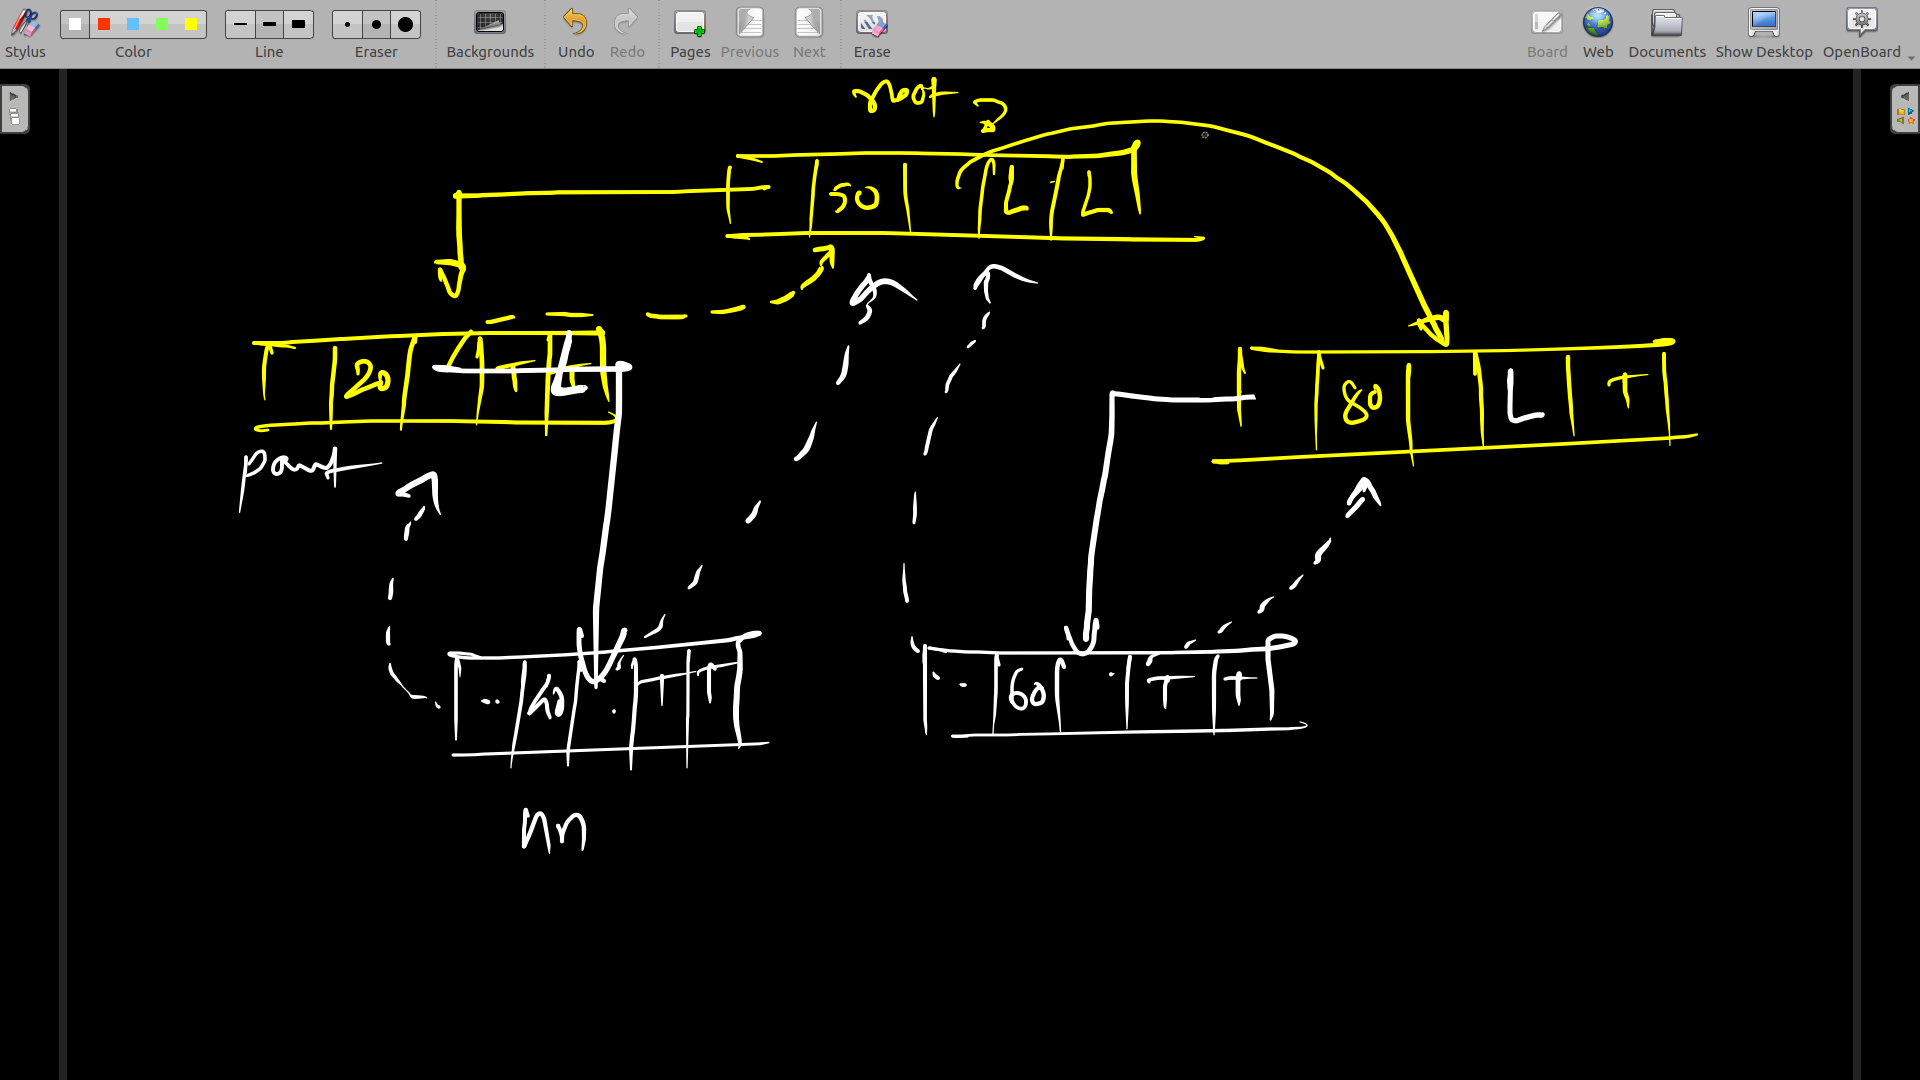 Stylus Color Line Eraser Backgrounds Undo Redo Pages Previous Next Erase Board Web Documents Show Desktop OpenBoard
root
50 L L
20 T L
80 L T
40 T T
60 T T
nn